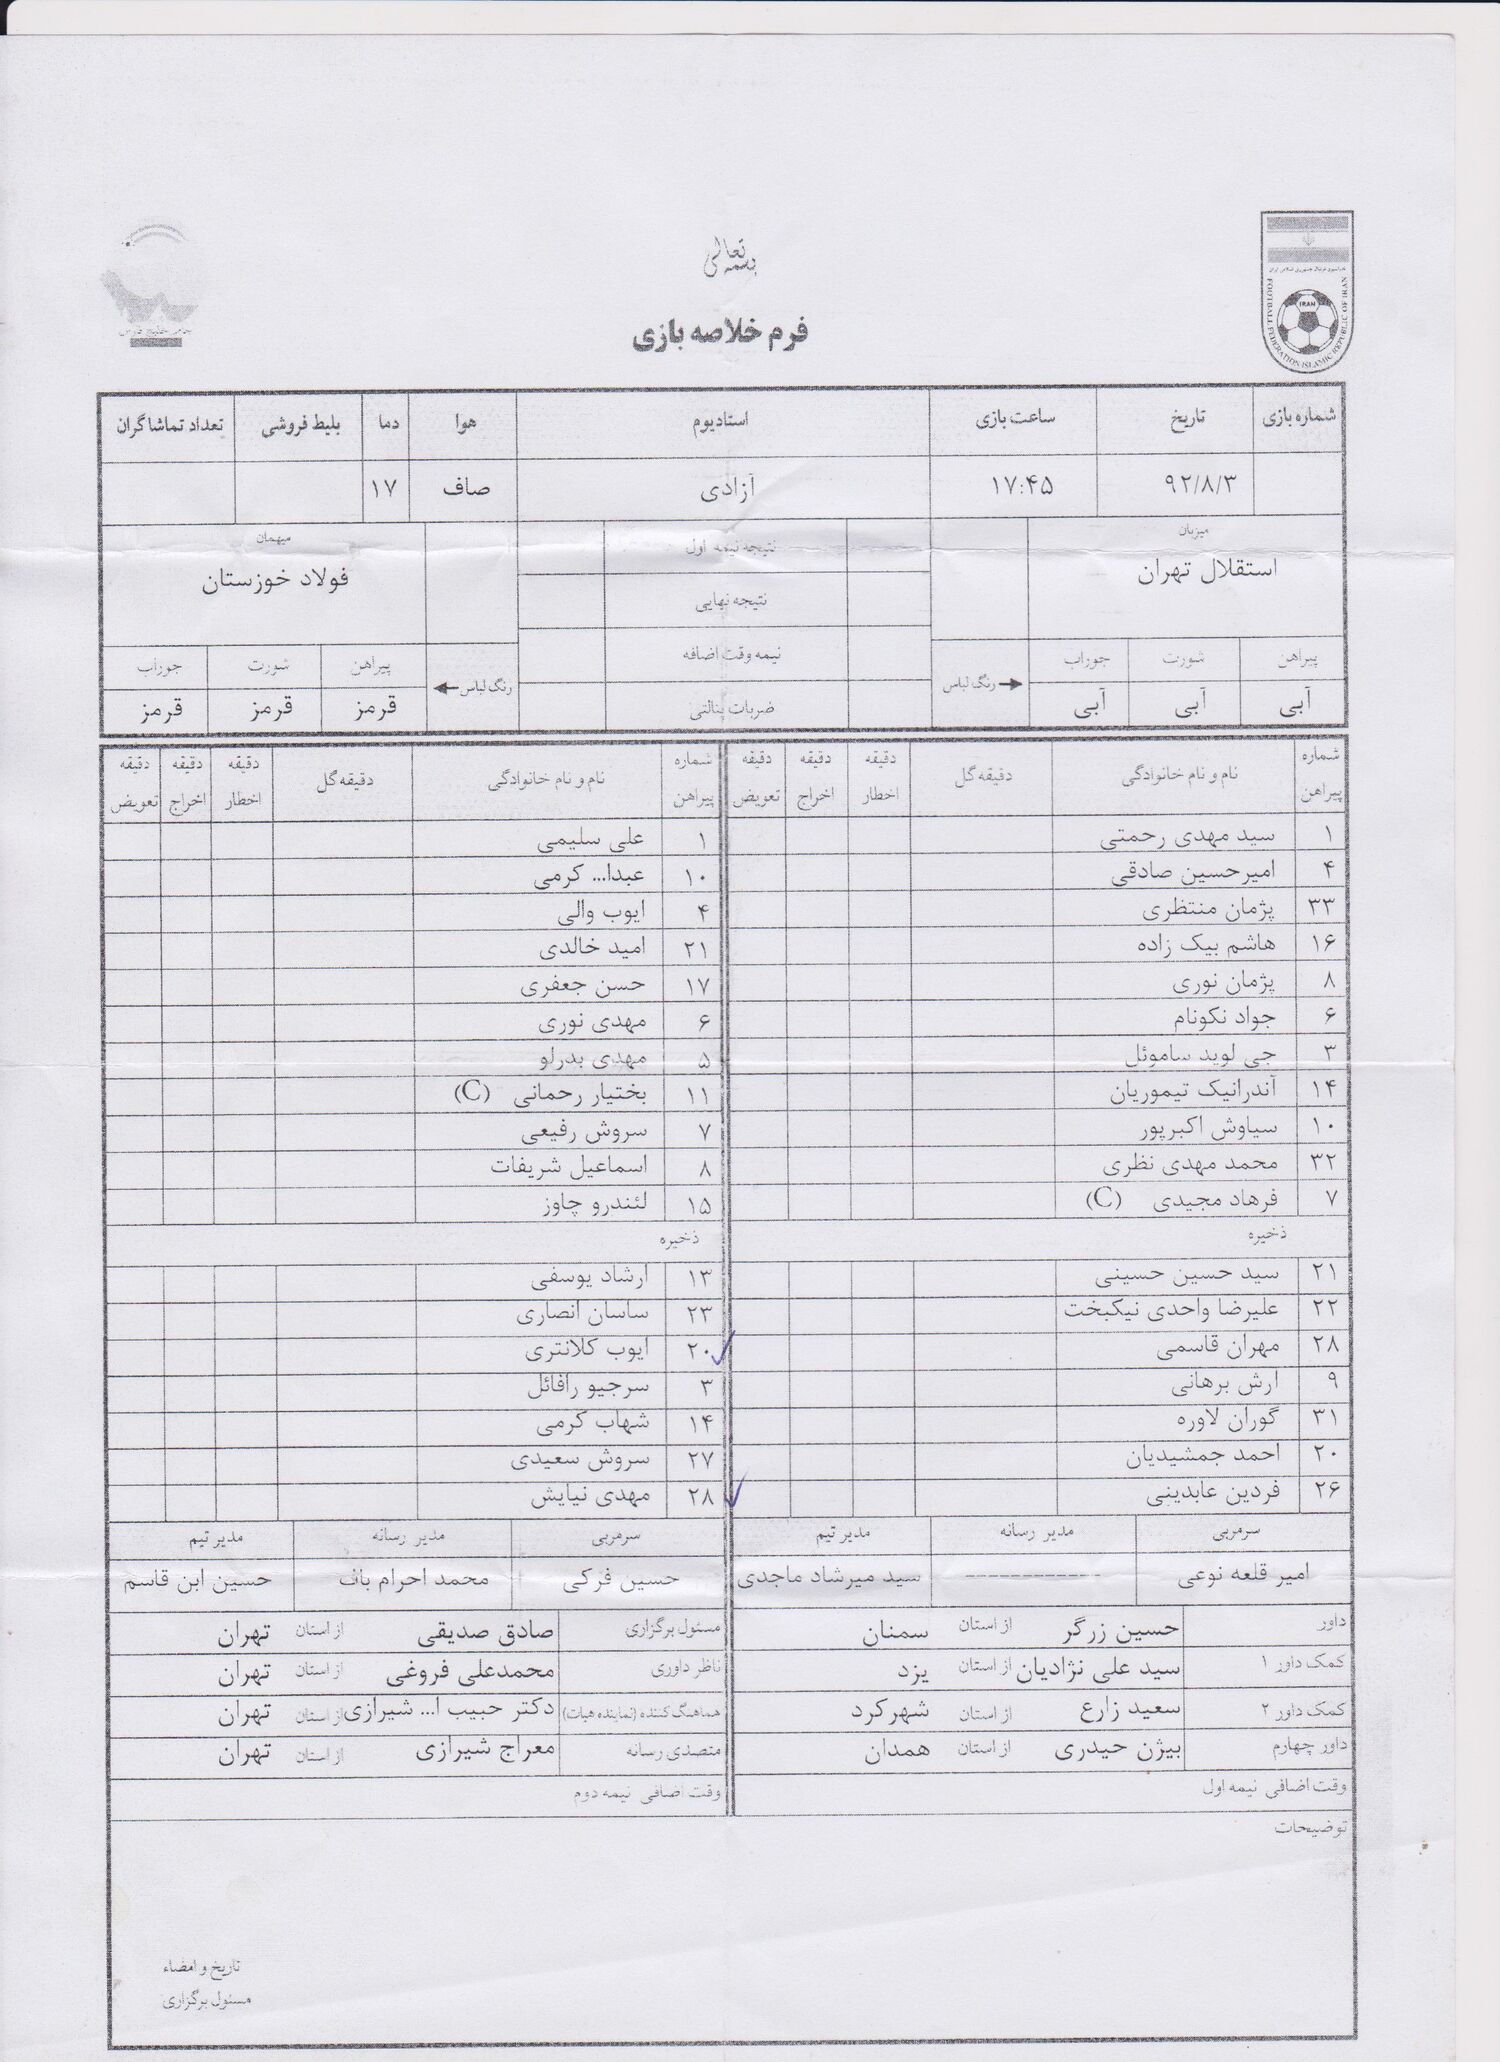 بسمه تعالی
فرم خلاصه بازی
IRAN
FOOTBALL FEDERATION ISLAMIC REPUBLIC OF IRAN
شماره بازی تاریخ ساعت بازی استادیوم هوا دما بلیط فروشی تعداد تماشاگران
۹۲/۸/۳ ۱۷:۴۵ آزادی صاف ۱۷
میزبان نتیجه نیمه اول میهمان
استقلال تهران فولاد خوزستان
نتیجه نهایی
نیمه وقت اضافه
پیراهن شورت جوراب رنگ لباس ضربات پنالتی رنگ لباس پیراهن شورت جوراب
آبی آبی آبی قرمز قرمز قرمز
شماره پیراهن نام و نام خانوادگی دقیقه گل دقیقه اخطار دقیقه اخراج دقیقه تعویض شماره پیراهن نام و نام خانوادگی دقیقه گل دقیقه اخطار دقیقه اخراج دقیقه تعویض
۱ سید مهدی رحمتی ۱ علی سلیمی
۴ امیرحسین صادقی ۱۰ عبدا... کرمی
۳۳ پژمان منتظری ۴ ایوب والی
۱۶ هاشم بیک زاده ۲۱ امید خالدی
۸ پژمان نوری ۱۷ حسن جعفری
۶ جواد نکونام ۶ مهدی نوری
۳ جی لوید ساموئل ۵ مهدی بدرلو
۱۴ آندرانیک تیموریان ۱۱ بختیار رحمانی (C)
۱۰ سیاوش اکبرپور ۷ سروش رفیعی
۳۲ محمد مهدی نظری ۸ اسماعیل شریفات
۷ فرهاد مجیدی (C) ۱۵ لئندرو چاوز
ذخیره ذخیره
۲۱ سید حسین حسینی ۱۳ ارشاد یوسفی
۲۲ علیرضا واحدی نیکبخت ۲۳ ساسان انصاری
۲۸ مهران قاسمی ۲۰ ایوب کلانتری
۹ ارش برهانی ۳ سرجیو رافائل
۳۱ گوران لاوره ۱۴ شهاب کرمی
۲۰ احمد جمشیدیان ۲۷ سروش سعیدی
۲۶ فردین عابدینی ۲۸ مهدی نیایش
سرمربی مدیر رسانه مدیر تیم سرمربی مدیر رسانه مدیر تیم
امیر قلعه نوعی ------------ سید میرشاد ماجدی حسین فرکی محمد احرام باف حسین ابن قاسم
داور حسین زرگر از استان سمنان مسئول برگزاری صادق صدیقی از استان تهران
کمک داور ۱ سید علی نژادیان از استان یزد ناظر داوری محمدعلی فروغی از استان تهران
کمک داور ۲ سعید زارع از استان شهرکرد هماهنگ کننده (نماینده هیات) دکتر حبیب ا... شیرازی از استان تهران
داور چهارم بیژن حیدری از استان همدان متصدی رسانه معراج شیرازی از استان تهران
وقت اضافی نیمه اول وقت اضافی نیمه دوم
توضیحات
تاریخ و امضاء
مسئول برگزاری